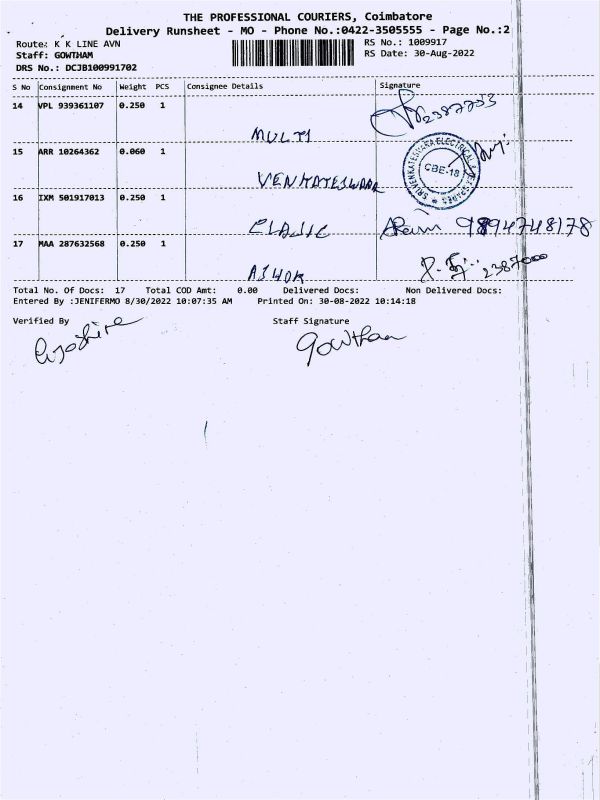 THE PROFESSIONAL COURIERS, Coimbatore
Delivery Runsheet - MO - Phone No.:0422-3505555 - Page No.:2
Route: K K LINE AVN
RS No.: 1009917
Staff: GOWTHAM
RS Date: 30-Aug-2022
DRS No.: DCJB100991702
S No Consignment No Weight PCS Consignee Details Signature
14 VPL 939361107 0.250 1
MULTI
15 ARR 10264362 0.060 1
VENKATESWARA
CBE-18
16 IXM 501917013 0.250 1
CLASIC 9894748178
17 MAA 287632568 0.250 1
ASHOK 2387000
Total No. Of Docs: 17 Total COD Amt: 0.00 Delivered Docs: Non Delivered Docs:
Entered By :JENIFERMO 8/30/2022 10:07:35 AM Printed On: 30-08-2022 10:14:18
Verified By Staff Signature
Gowtham